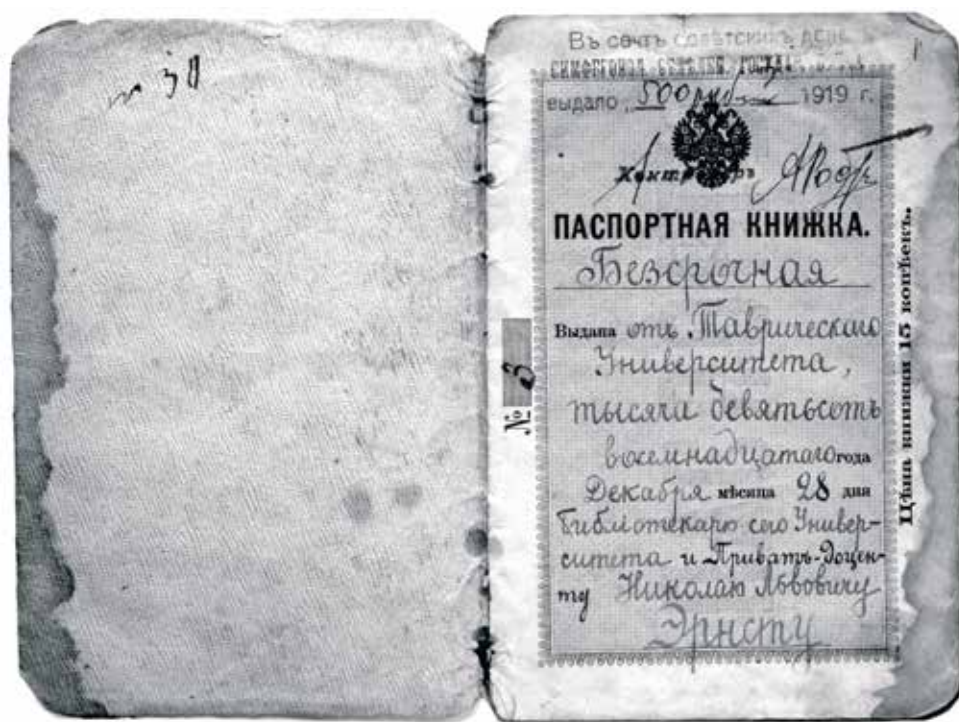 Въ счетъ советскихъ
выдало 500 руб. 1919 г.
ПАСПОРТНАЯ КНИЖКА.
Безсрочная
Выдана отъ Таврическаго
Университета,
тысяча девятьсотъ
восемнадцатаго года
Декабря мѣсяца 28 дня
библіотекарю сего Универ-
ситета и Приватъ-Доцен-
ту Николаю Львовичу
Эрнсту
№ 3
Цѣна книжки 15 копѣекъ.